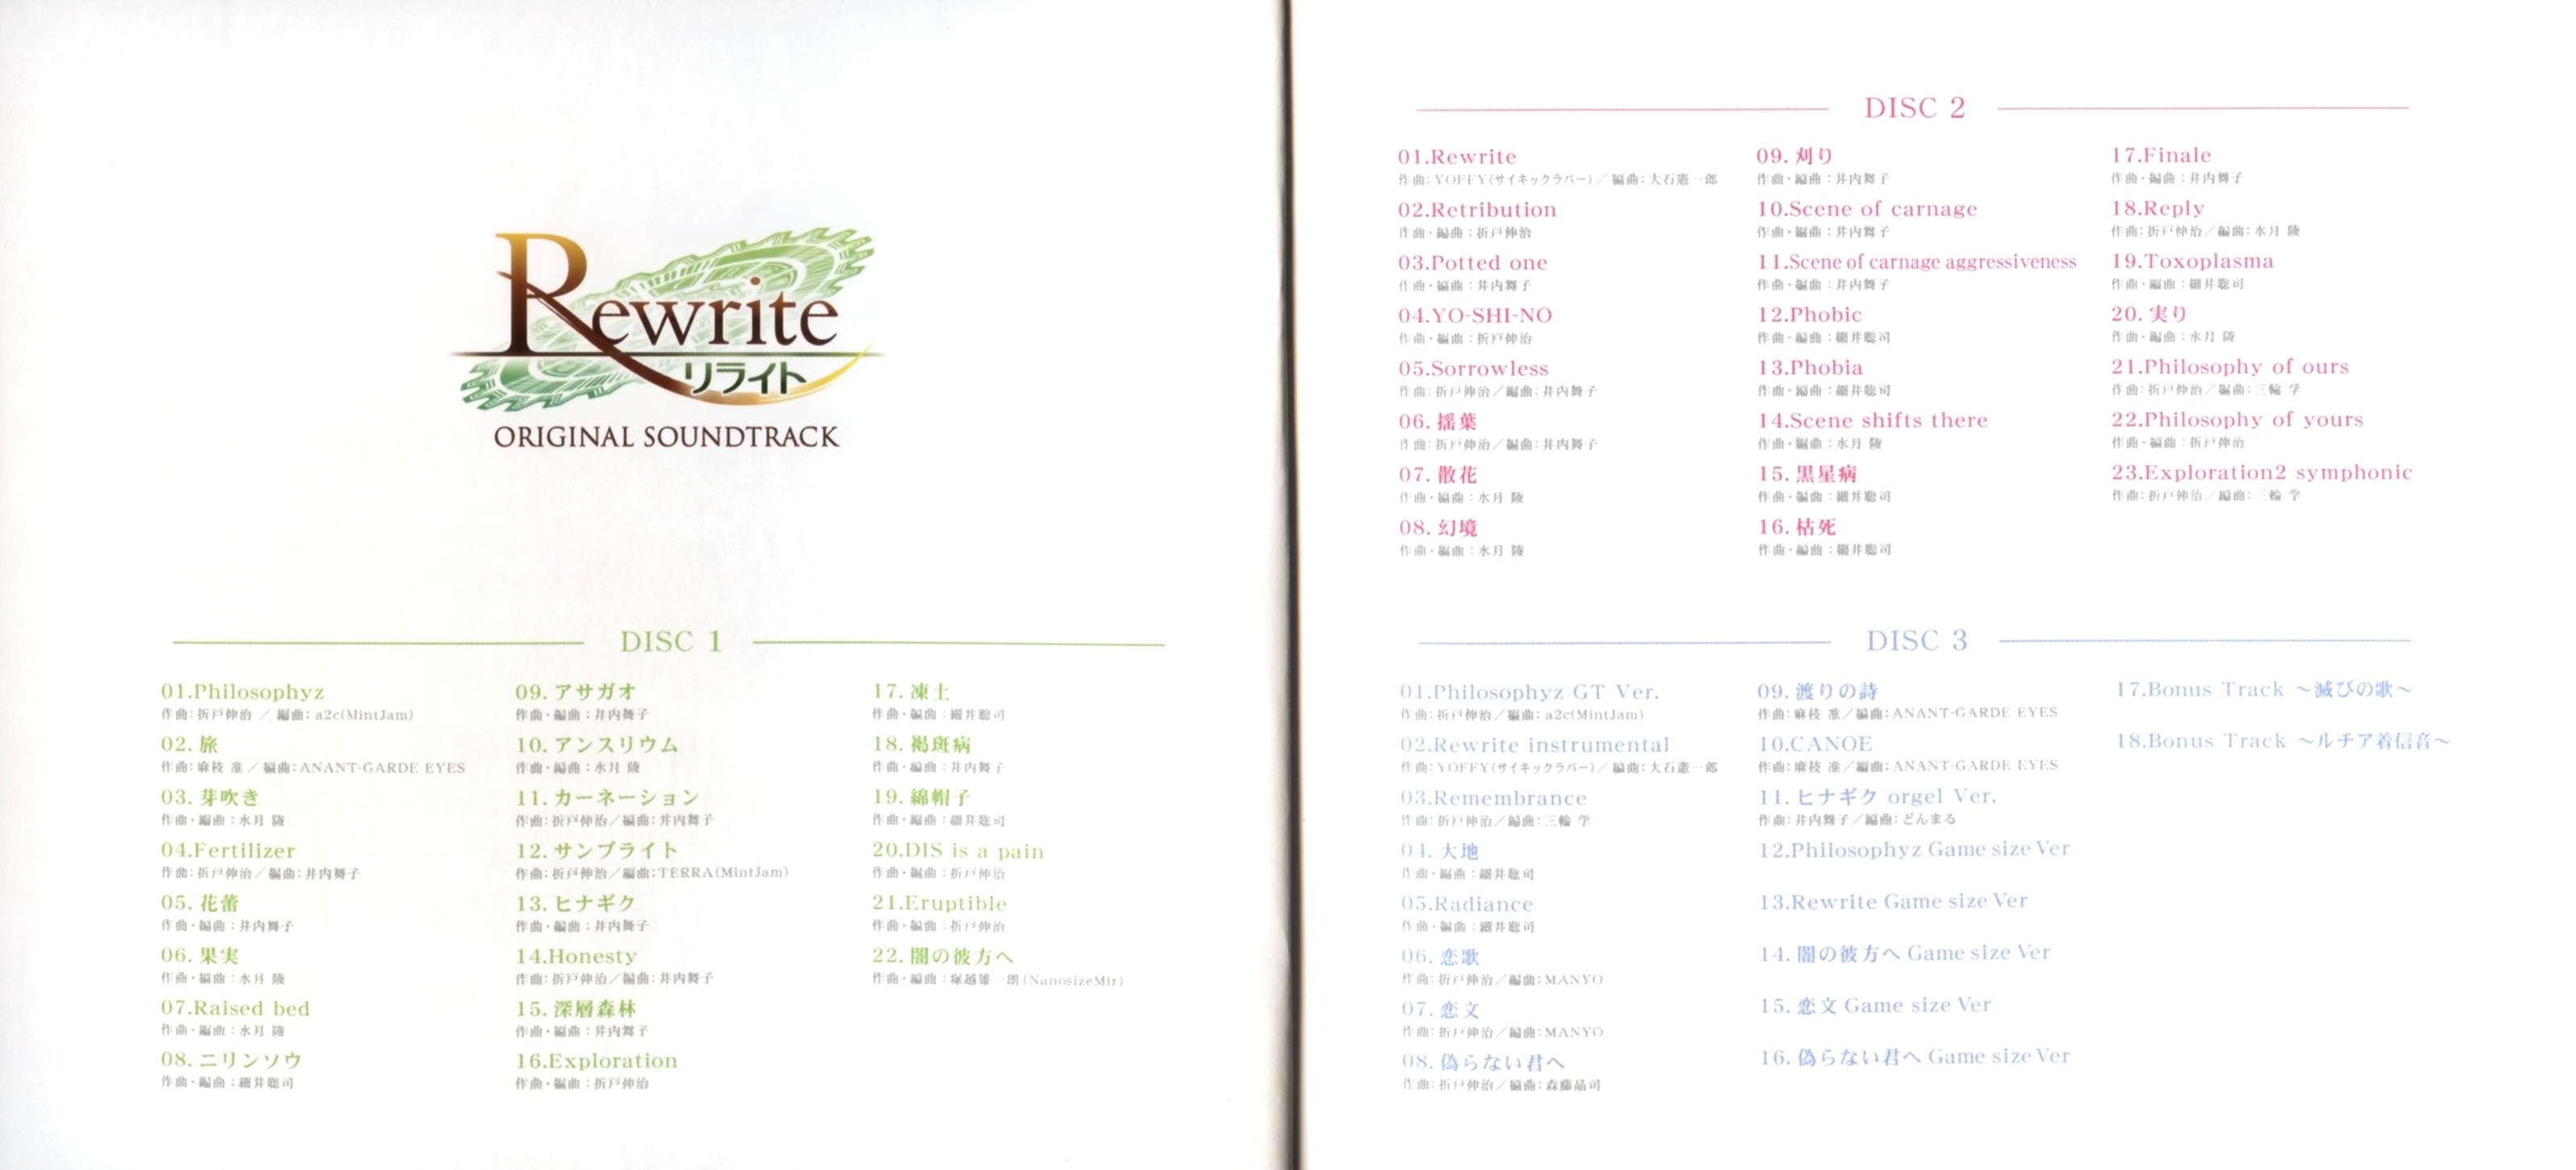 Rewrite
リライト
ORIGINAL SOUNDTRACK
DISC 1
01.Philosophyz
作曲:折戸伸治 ／ 編曲:a2c(MintJam)
02. 旅
作曲:麻枝 准／編曲:ANANT-GARDE EYES
03. 芽吹き
作曲・編曲:水月 陵
04.Fertilizer
作曲:折戸伸治／編曲:井内舞子
05. 花蕾
作曲・編曲:井内舞子
06. 果実
作曲・編曲:水月 陵
07.Raised bed
作曲・編曲:水月 陵
08. ニリンソウ
作曲・編曲:細井聡司
09. アサガオ
作曲・編曲:井内舞子
10. アンスリウム
作曲・編曲:水月 陵
11. カーネーション
作曲:折戸伸治／編曲:井内舞子
12. サンブライト
作曲:折戸伸治／編曲:TERRA(MintJam)
13. ヒナギク
作曲・編曲:井内舞子
14.Honesty
作曲:折戸伸治／編曲:井内舞子
15. 深層森林
作曲・編曲:井内舞子
16.Exploration
作曲・編曲:折戸伸治
17. 凍土
作曲・編曲:細井聡司
18. 褐斑病
作曲・編曲:井内舞子
19. 綿帽子
作曲・編曲:細井聡司
20.DIS is a pain
作曲・編曲:折戸伸治
21.Eruptible
作曲・編曲:折戸伸治
22. 闇の彼方へ
作曲・編曲:塚越雄一朗(NanosizeMir)
DISC 2
01.Rewrite
作曲:YOFFY(サイキックラバー)／編曲:大石憲一郎
02.Retribution
作曲・編曲:折戸伸治
03.Potted one
作曲・編曲:井内舞子
04.YO-SHI-NO
作曲・編曲:折戸伸治
05.Sorrowless
作曲:折戸伸治／編曲:井内舞子
06. 揺葉
作曲:折戸伸治／編曲:井内舞子
07. 散花
作曲・編曲:水月 陵
08. 幻境
作曲・編曲:水月 陵
09. 刈り
作曲・編曲:井内舞子
10.Scene of carnage
作曲・編曲:井内舞子
11.Scene of carnage aggressiveness
作曲・編曲:井内舞子
12.Phobic
作曲・編曲:細井聡司
13.Phobia
作曲・編曲:細井聡司
14.Scene shifts there
作曲・編曲:水月 陵
15. 黒星病
作曲・編曲:細井聡司
16. 枯死
作曲・編曲:細井聡司
17.Finale
作曲・編曲:井内舞子
18.Reply
作曲:折戸伸治／編曲:水月 陵
19.Toxoplasma
作曲・編曲:細井聡司
20. 実り
作曲・編曲:水月 陵
21.Philosophy of ours
作曲:折戸伸治／編曲:三輪 学
22.Philosophy of yours
作曲・編曲:折戸伸治
23.Exploration2 symphonic
作曲:折戸伸治／編曲:三輪 学
DISC 3
01.Philosophyz GT Ver.
作曲:折戸伸治／編曲:a2c(MintJam)
02.Rewrite instrumental
作曲:YOFFY(サイキックラバー)／編曲:大石憲一郎
03.Remembrance
作曲:折戸伸治／編曲:三輪 学
04. 大地
作曲・編曲:細井聡司
05.Radiance
作曲・編曲:細井聡司
06. 恋歌
作曲:折戸伸治／編曲:MANYO
07. 恋文
作曲:折戸伸治／編曲:MANYO
08. 偽らない君へ
作曲:折戸伸治／編曲:森藤晶司
09. 渡りの詩
作曲:麻枝 准／編曲:ANANT-GARDE EYES
10.CANOE
作曲:麻枝 准／編曲:ANANT-GARDE EYES
11. ヒナギク orgel Ver.
作曲:井内舞子／編曲:どんまる
12.Philosophyz Game size Ver
13.Rewrite Game size Ver
14. 闇の彼方へ Game size Ver
15. 恋文 Game size Ver
16. 偽らない君へ Game size Ver
17.Bonus Track ～滅びの歌～
18.Bonus Track ～ルチア着信音～